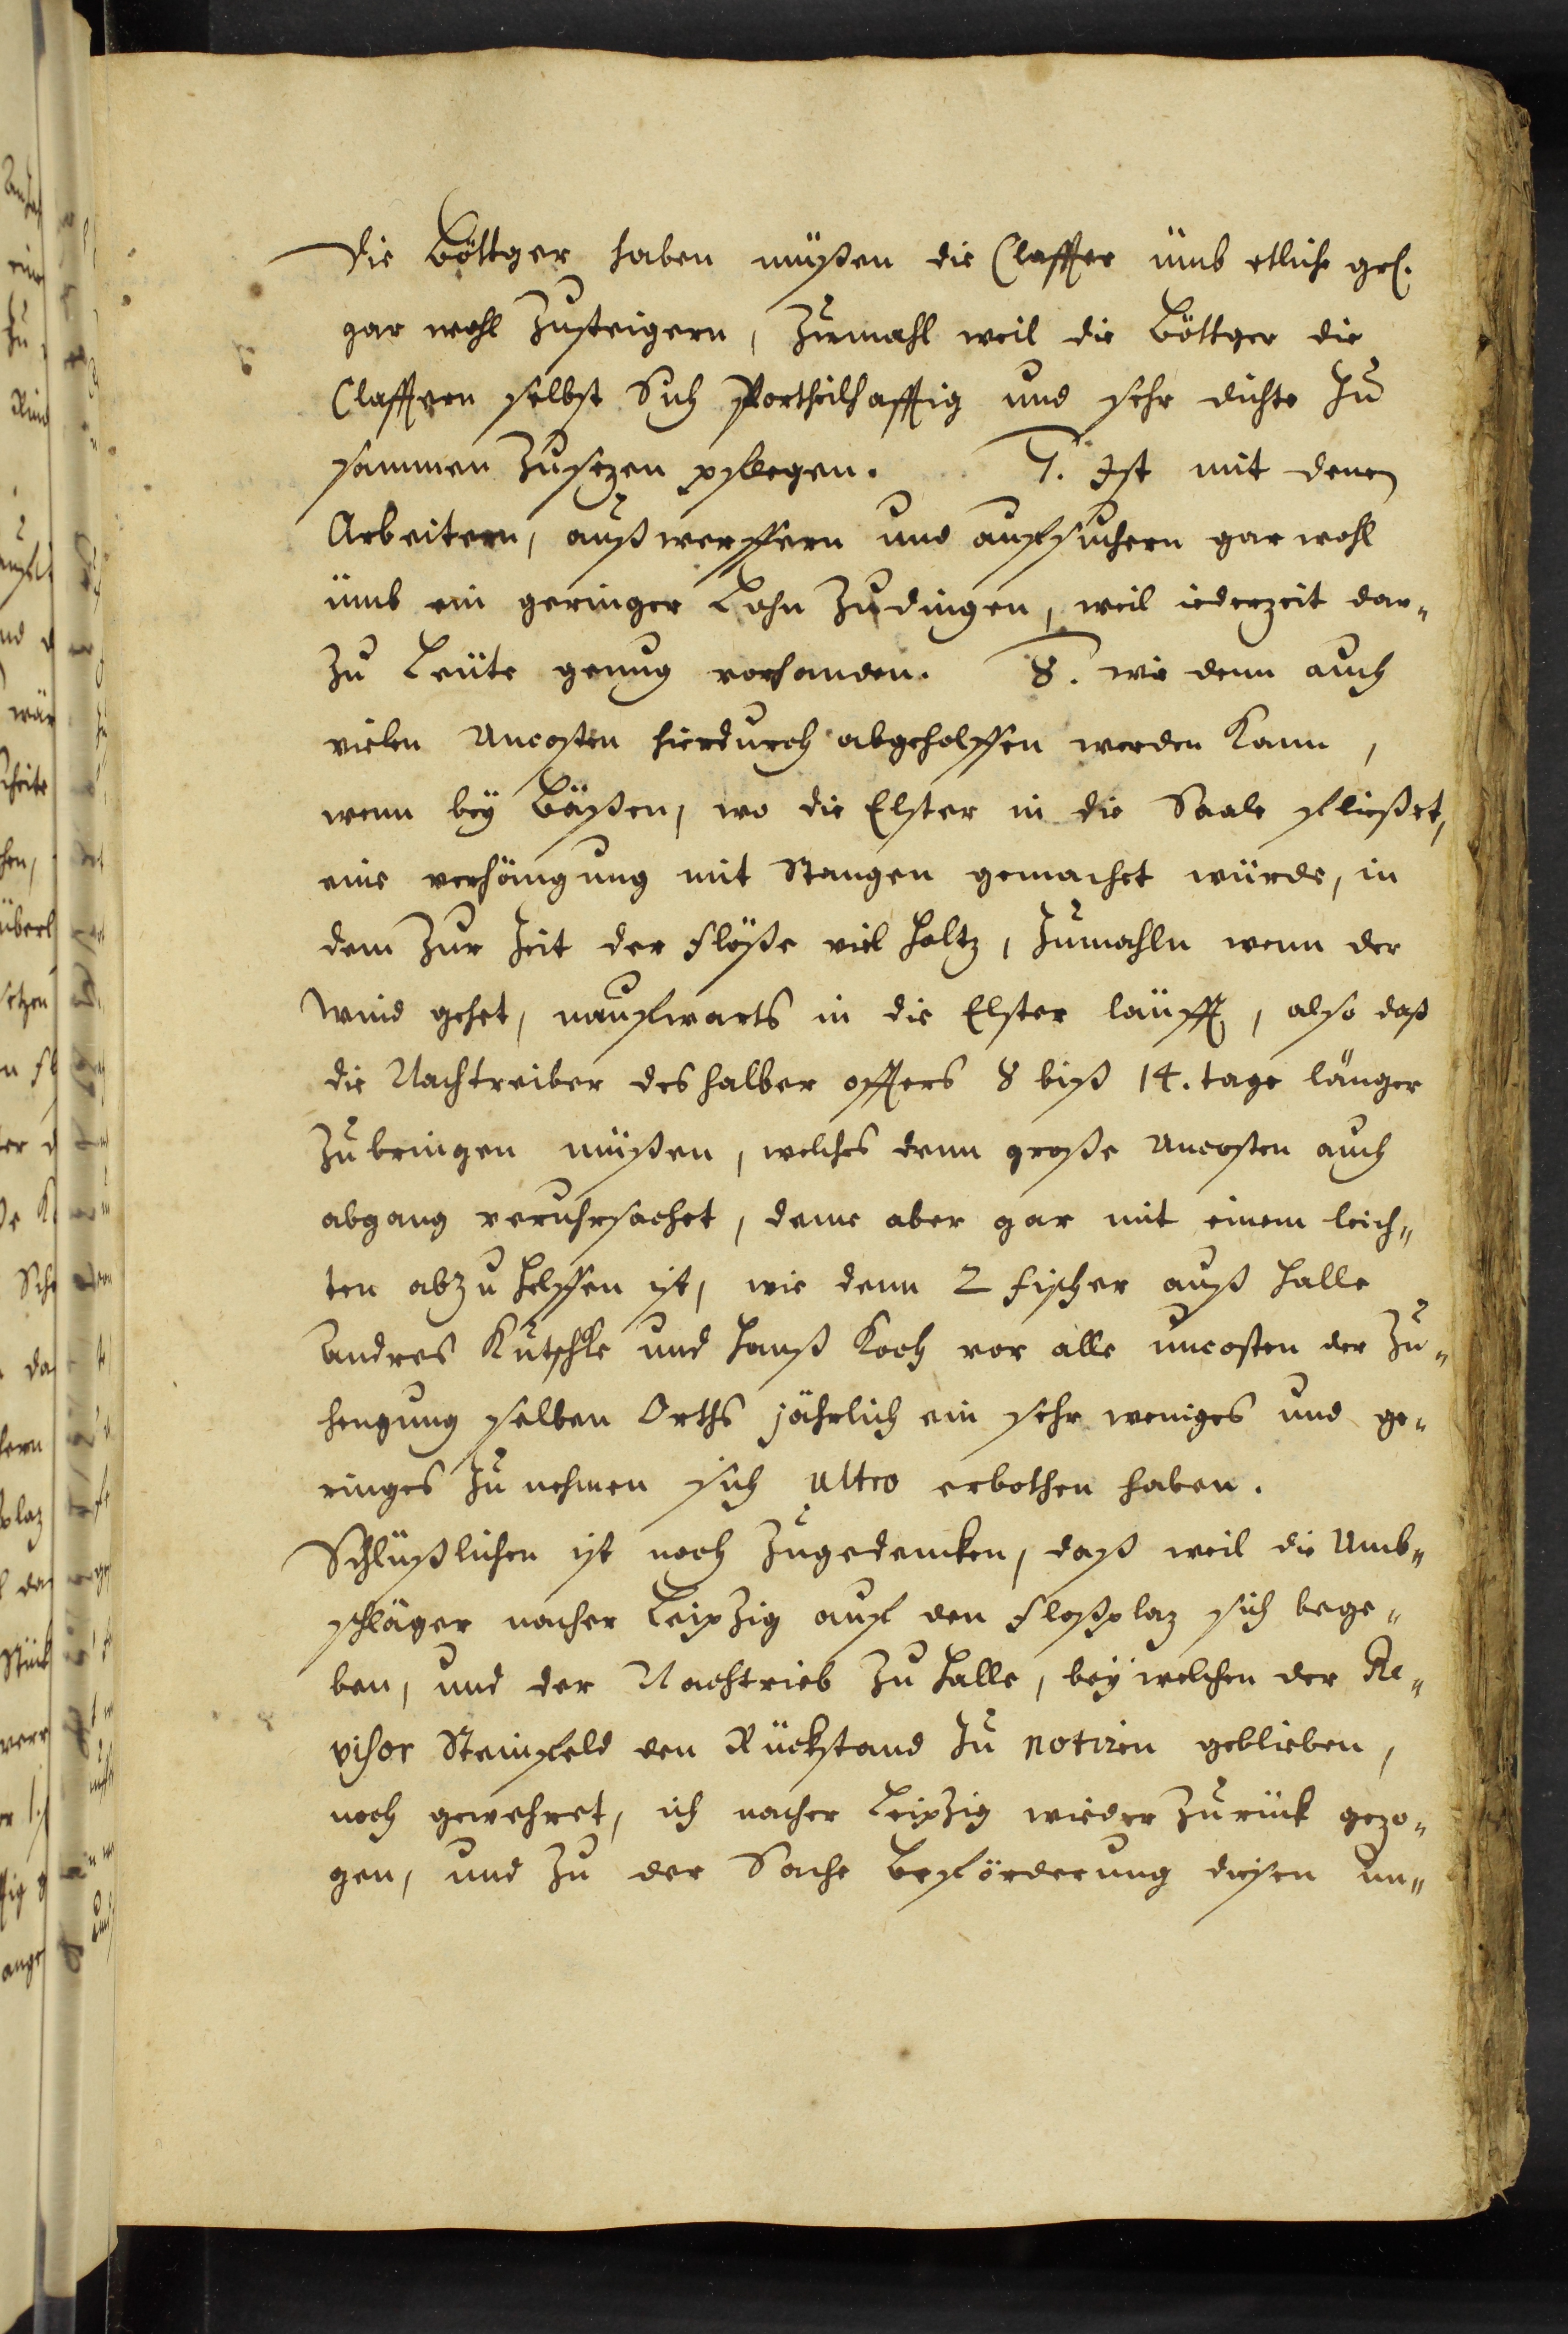 die Böttger haben müßen die Claffter ümb etliche grl.
gar wohl Zusteigern, Zumahl weil die Böttger die
Clafftern selbst Sich Vortheilhafftig und sehr dichte Zu
sammen Zusezen pflegen. 7. Ist mit denen
Arbeitern, außwerffern und auffsuchern gar wohl
ümb ein geringer Lohn Zudingen, weil iederzeit dar-
Zu Leüte genug vorhanden. 8. wie denn auch
vielen Uncosten hierdurch abgeholffen werden Kann,
wenn bey Bäßen, wo die Elster in die Saale fließet,
eine verhängung mit Stangen gemachet würde, in
dem Zur Zeit der Flöße viel Holtz, Zumahln wenn der
Wind gehet, nauffwarts in die Elster läufft, also daß
die Nachtreiber deshalber offters 8 biß 14. tage länger
Zubringen müßen, welches denn große Uncosten auch
abgang veruhrsachet, deme aber gar mit einem leich-
ten abzuhelffen ist, wie denn 2 Fischer auß Halle
Andres Kutschke und Hanß Koch vor alle uncosten der Zu-
hengung selben Orths jährlich ein sehr weniges und ge-
ringes Zu nehmen sich ultro erbothen haben.
Schlüßlichen ist noch Zugedencken, daß weil die Umb-
schläger nacher Leipzig auff den Floßplaz sich bege-
ben, und der Nachtrieb Zu Halle, bey welchen der Re-
visor Steinfeld den Rückstand Zu notiren geblieben,
noch gewehret, ich nacher Leipzig wieder Zurück gezo-
gen, und Zu der Sache Beförderung diesen un-